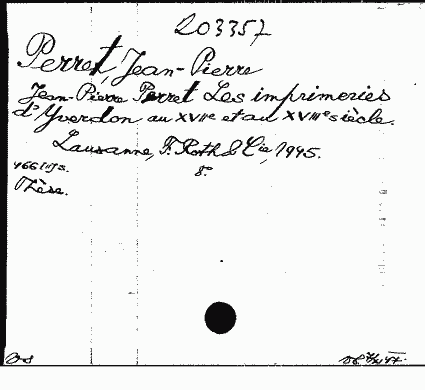 203357
Perret, Jean-Pierre
Jean-Pierre Perret Les imprimeries
d'Yverdon au XVIIe et au XVIIIe siècle.
Lausanne, F. Roth & Cie, 1945.
8°
Thèse.